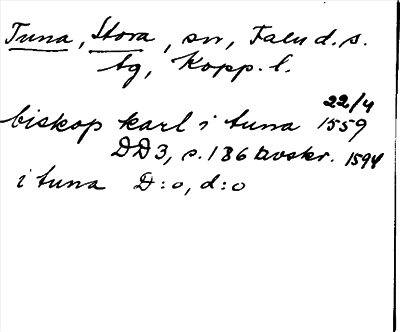 Tuna, Stora, sn, Falu d. s.
tg, Kopp. l.
22/4
biskop karl i tuna 1559
DD3, s. 186 avskr. 1594
i tuna D:o, d:o